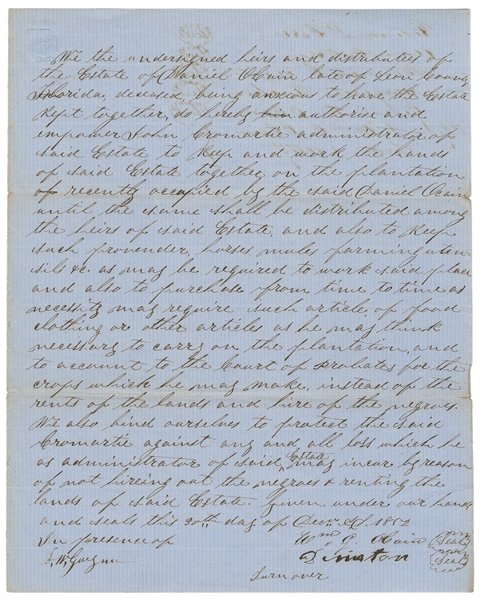 We the undersigned heirs and distributees of
the Estate of Daniel Bain late of Leon County
Florida, deceased being anxious to have the Estate
Kept together, do hereby authorise and
empower John Cromartie administrator of
said Estate to Keep and work the hands
of said Estate together, on the plantation
recently occupied by the said Daniel Bain
until the same shall be distributed among
the heirs of said Estate, and also to Keep
such provender, horses mules farming uten
sils &c. as may be required to work said place
and also to purchase from time to time as
necessity may require such article of food
clothing or other articles as he may think
necessary to carry on the plantation, and
to account to the Court of Probates for the
crops which he may make, instead of the
rents of the lands and hire of the negroes.
We also bind ourselves to protect the said
Cromartie against any and all loss which he
as administrator of said Estate may incur by reason
of not hireing out the negroes & renting the
lands of said Estate. Given under our hands
and seals this 20th day of 1852
In presence of Wm Bain Seal
Seal
Turn over